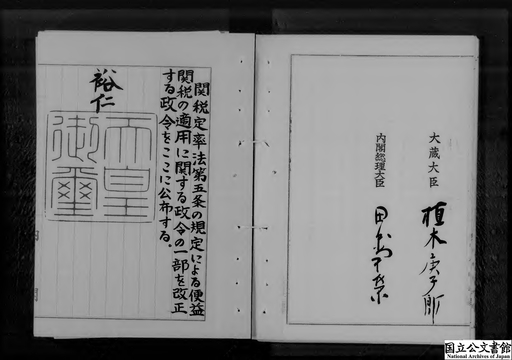 関税定率法第五条の規定による便益
関税の適用に関する政令の一部を改正
する政令をここに公布する。
裕仁
天皇
御璽
大蔵大臣
植木庚子郎
内閣総理大臣
田中角栄
国立公文書館
National Archives of Japan